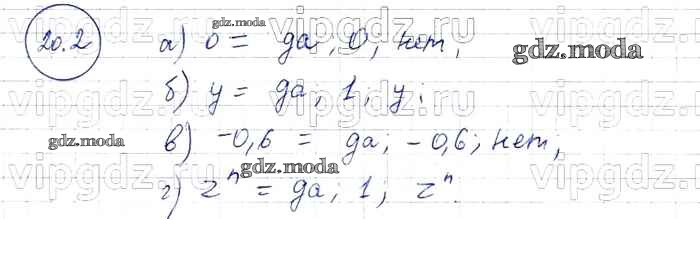 20.2 а) 0 = да, 0, нет,
б) y = да, 1, y;
в) -0,6 = да; -0,6; нет;
г) z^n = да; 1; z^n.
gdz.moda
gdz.moda
gdz.moda
gdz.moda
vipgdz.ru vipgdz.ru
vipgdz.ru vipgdz.ru
vipgdz.ru vipgdz.ru